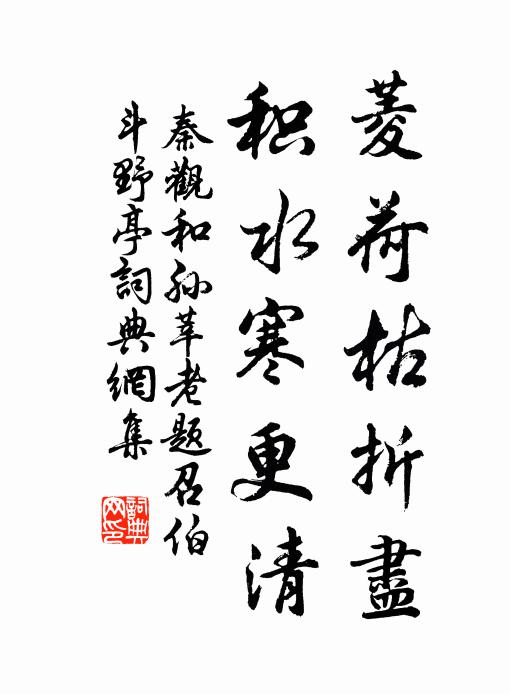 菱荷枯折盡
积水寒更清
秦觀和孙莘老题召伯
斗野亭詞典網集
詞典網印